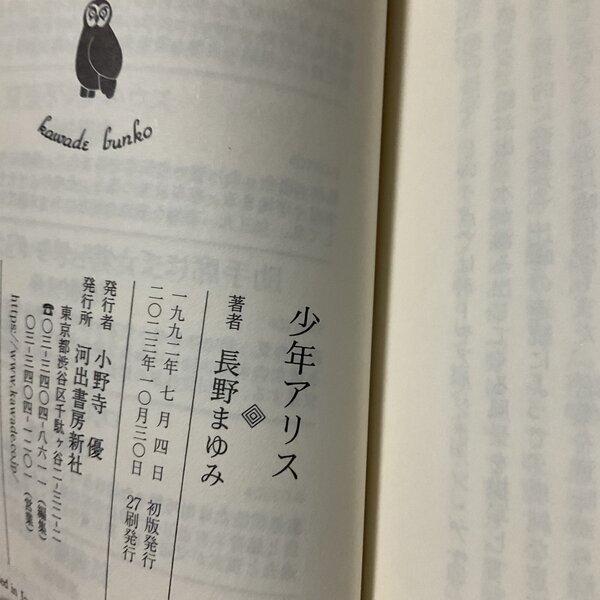 kawade bunko
少年アリス
著者 長野まゆみ
一九九二年 七月 四日 初版発行
二〇二三年一〇月三〇日 27刷発行
発行者 小野寺 優
発行所 河出書房新社
東京都渋谷区千駄ヶ谷二-三二-二
☎〇三-三四〇四-八六一一(編集)
〇三-三四〇四-一二〇一(営業)
https://www.kawade.co.jp/